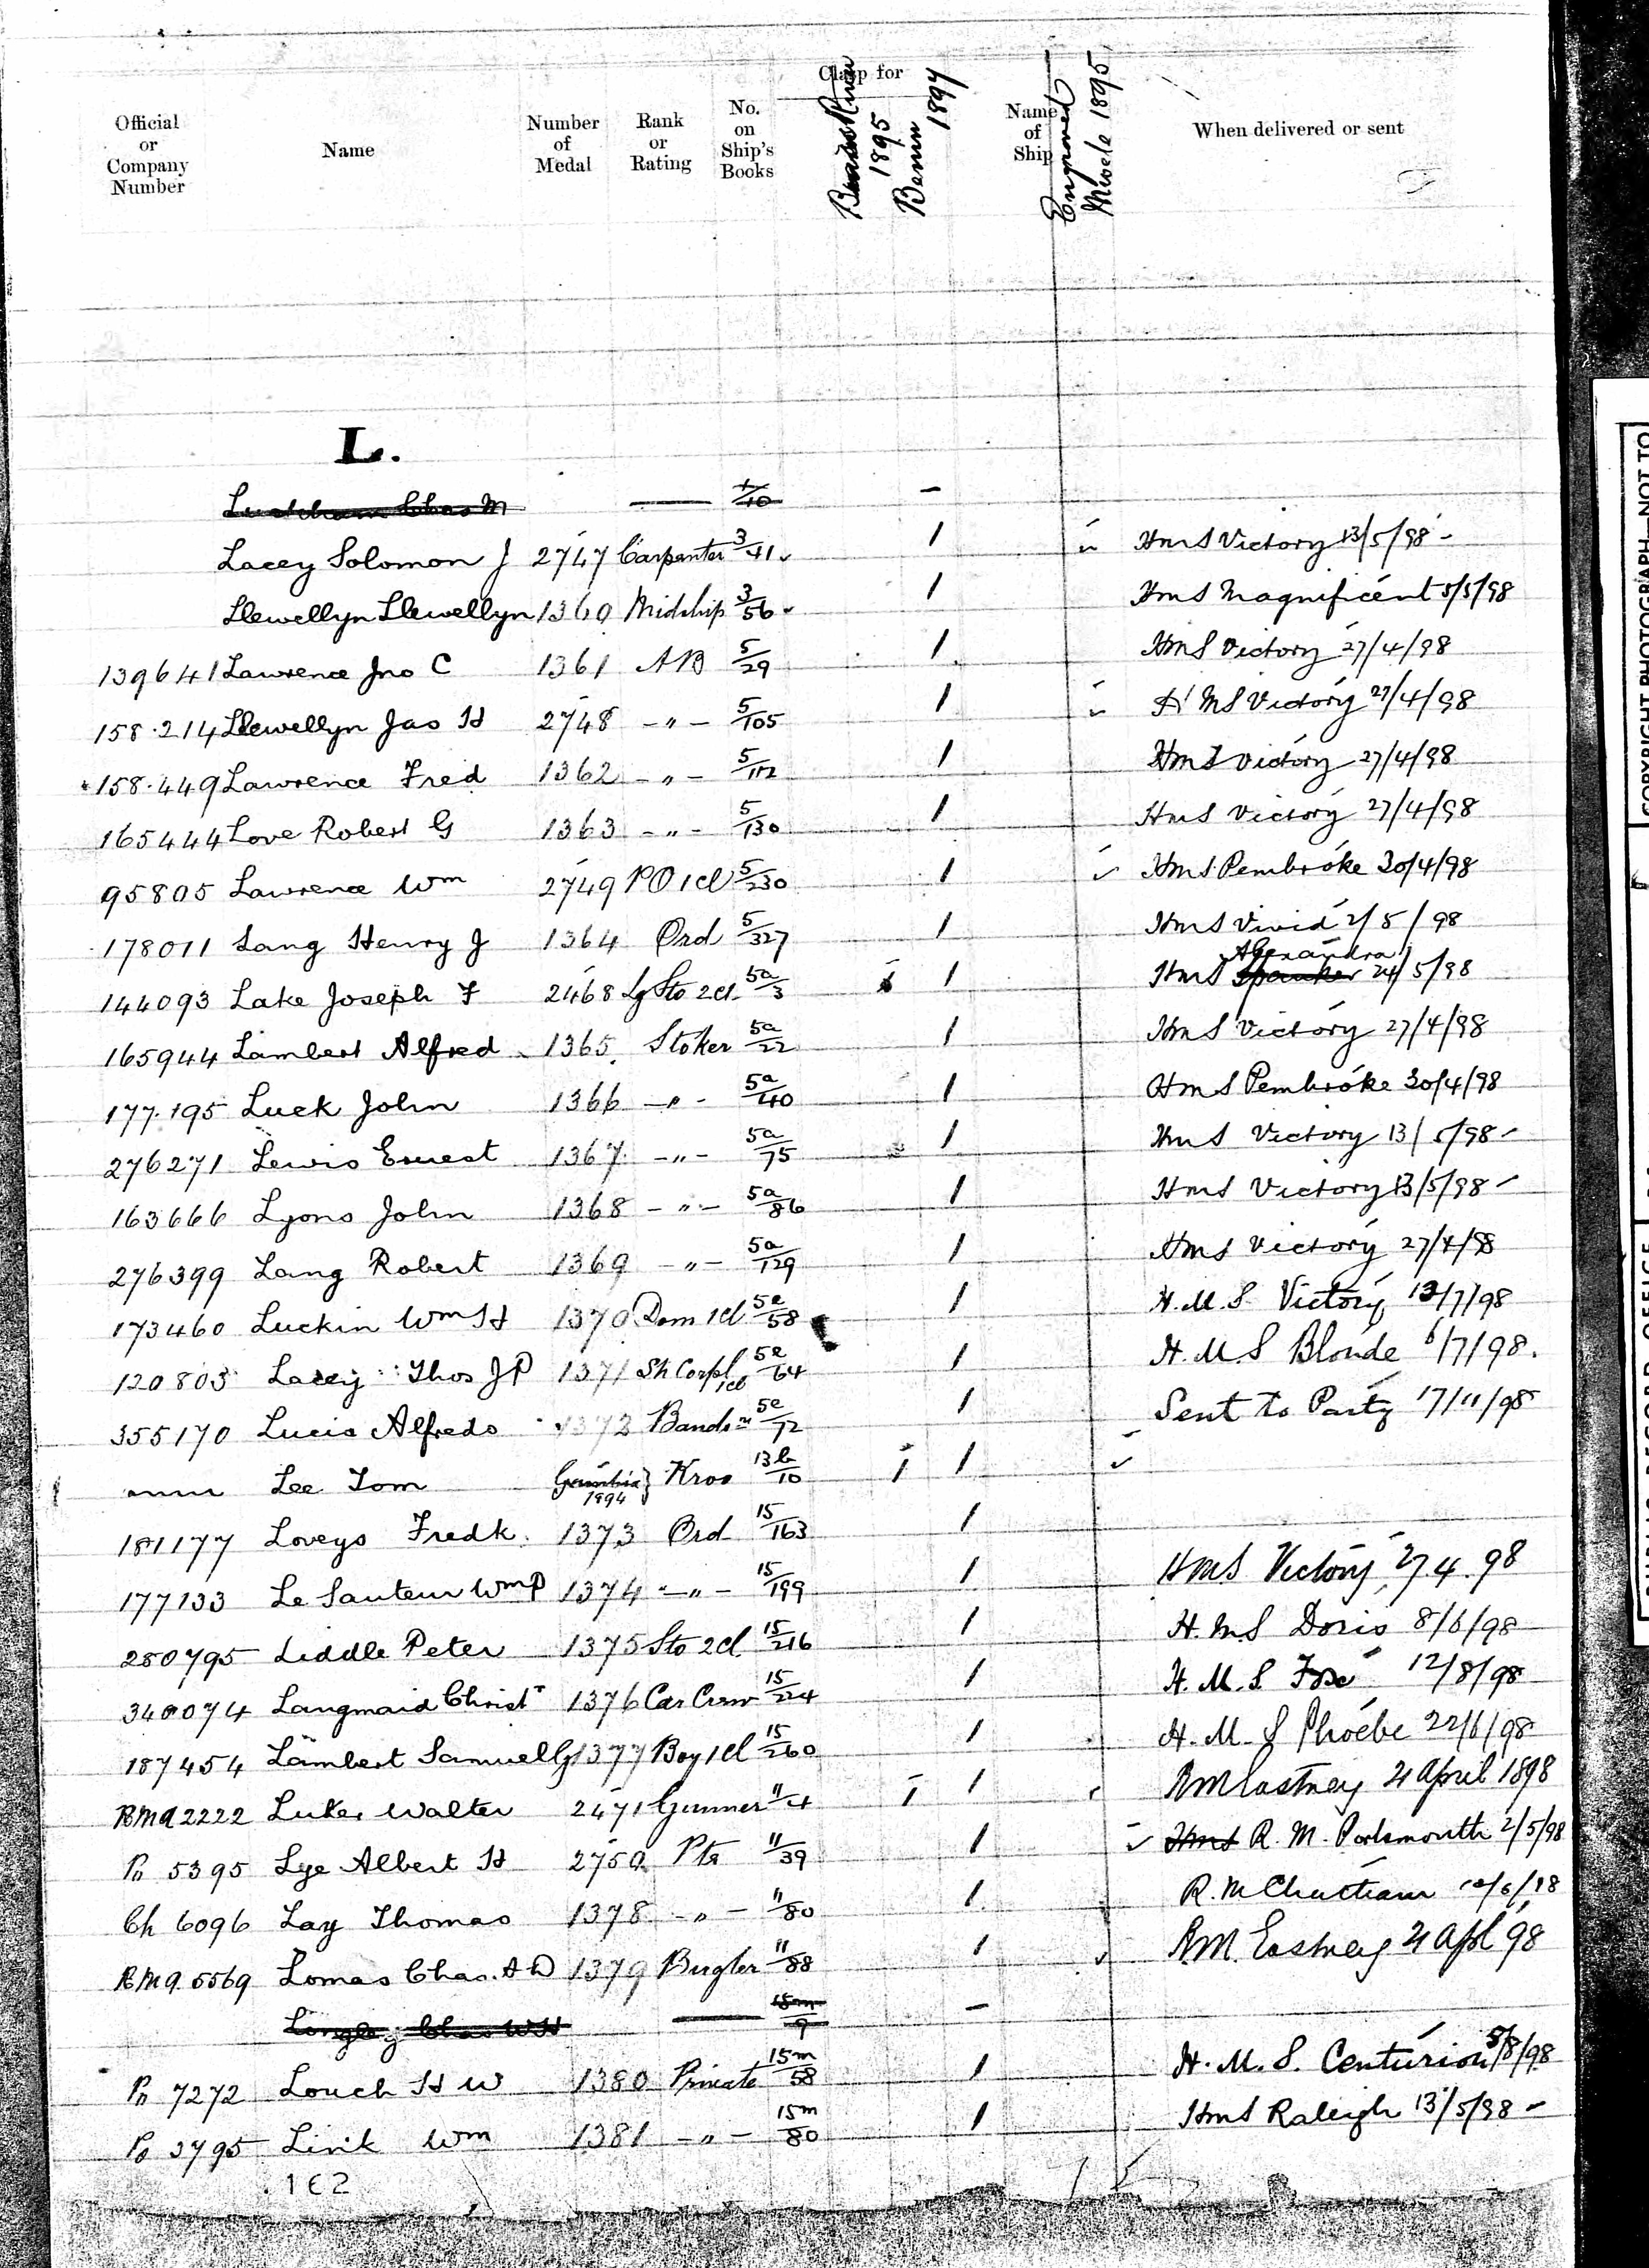 Official or Company Number
Name
Number of Medal
Rank or Rating
No. on Ship's Books
Clasp for
River 1895
Benin 1897
Name of Ship
Engraved Mwele 1895
When delivered or sent
L.
Chas M — 10 -
Lacey Solomon J 2747 Carpenter 3/41 1 HMS Victory 13/5/98 -
Llewellyn Llewellyn 1360 Midship 3/56 1 HMS Magnificent 5/5/98
139641 Lawrence Jno C 1361 AB 5/29 1 HMS Victory 27/4/98
158.214 Llewellyn Jas H 2748 -"- 5/105 1 HMS Victory 27/4/98
158.449 Lawrence Fred 1362 -"- 5/112 1 HMS Victory 27/4/98
165444 Love Robert G 1363 -"- 5/130 1 HMS Victory 27/4/98
95805 Lawrence Wm 2749 PO 1cl 5/230 1 ✓ HMS Pembroke 30/4/98
178011 Lang Henry J 1364 Ord 5/327 1 HMS Vivid 2/5/98
Alexandra
144093 Lake Joseph F 2468 Lg Sto 2cl 5a/3 1 1 HMS Spanker 24/5/98
165944 Lambert Alfred 1365 Stoker 5a/22 1 HMS Victory 27/4/98
177.195 Luck John 1366 -"- 5a/40 1 HMS Pembroke 30/4/98
276271 Lewis Ernest 1367 -"- 5a/75 1 HMS Victory 13/5/98 -
163666 Lyons John 1368 -"- 5a/86 1 HMS Victory 13/5/98 -
276399 Lang Robert 1369 -"- 5a/129 1 HMS Victory 27/4/98
173460 Luckin Wm H 1370 Dom 1cl 5e/58 1 H.M.S Victory 13/7/98
120803 Lacey Thos J P 1371 Sh Corpl 1cl 5e/64 1 H.M.S Blonde 6/7/98.
355170 Lucia Alfredo 1372 Bandsm 5e/72 1 Sent to Party 17/11/98
Lee Tom Gambia 1894 } Kroo 13b/10 1 1 ✓
181177 Loveys Fredk. 1373 Ord 15/163 1
177133 Le Sauteur Wm P 1374 -"- 15/199 1 HMS Victory 27.4.98
280795 Liddle Peter 1375 Sto 2cl 15/216 1 H.M.S Doris 8/6/98
340074 Langmaid Christr 1376 Car Crew 15/224 1 H.M.S Fox 12/8/98
187454 Lambert Samuel G 1377 Boy 1cl 15/260 1 H.M.S Phoebe 22/6/98
RMA 2222 Luker Walter 2471 Gunner 11/4 1 1 RM Eastney 21 April 1898
Po 5395 Lye Albert H 2750 Pte 11/39 1 ✓ HMS R.M. Portsmouth 2/5/98
Ch 6096 Lay Thomas 1378 -"- 11/80 1 R.M Chatham
RMA 5569 Lomas Chas. A D 1379 Bugler 11/88 1 RM. Eastney 21 Apl 98
Longley Chas W H — 15m/9 -
Po 7272 Louch H W 1380 Private 15m/58 1 H.M.S. Centurion 5/8/98
Po 3795 Link Wm 1381 -"- 15m/80 1 HMS Raleigh 13/5/98 -
162
COPYRIGHT PHOTOGRAPH—NOT TO